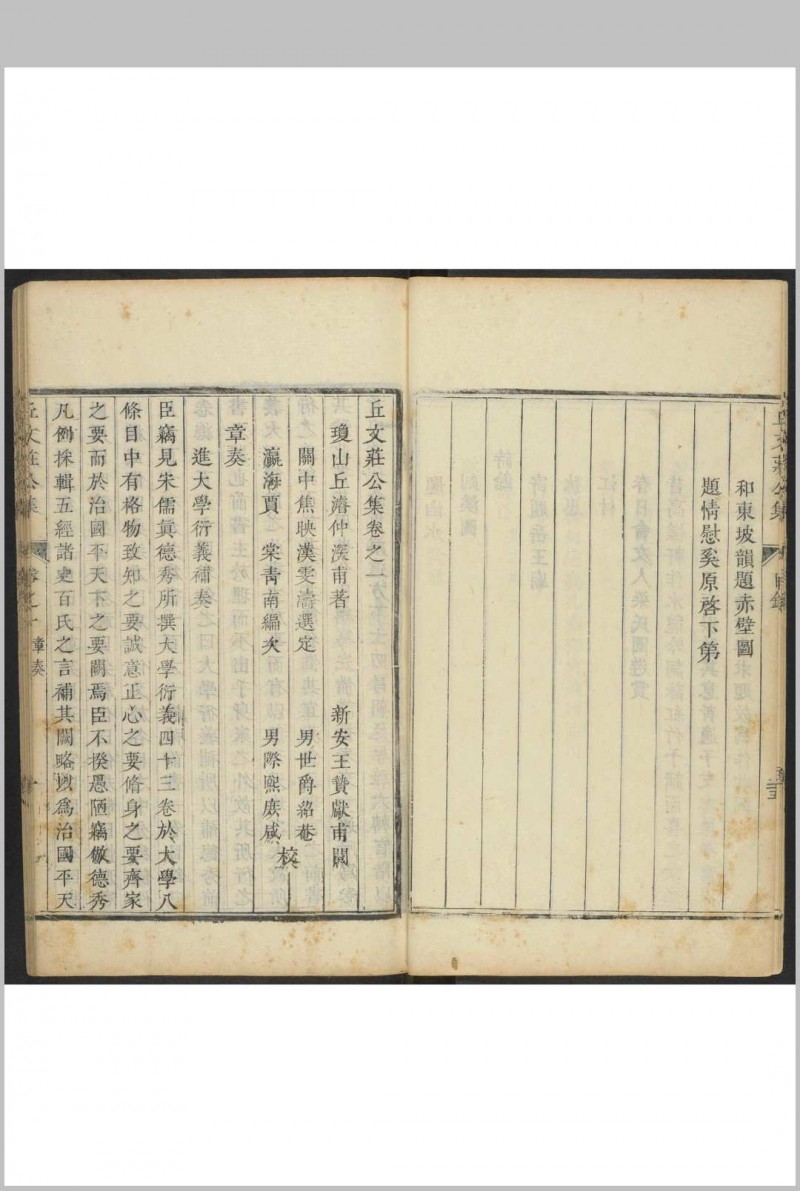 丘文莊公集 目錄
和東坡韻題赤壁圖
題情慰奚原啓下第
丘文莊公集卷之一
瓊山丘濬仲深甫著 新安王贊獻甫閱
關中焦映漢雯濤選定 男世爵紹巷
瀛海賈 棠青南編次 男際熙庶咸 校
章奏
進大學衍義補奏
臣竊見宋儒眞德秀所撰大學衍義四十三卷於大學八
條目中有格物致知之要誠意正心之要脩身之要齊家
之要而於治國平天下之要闕焉臣不揆愚陋竊倣德秀
凡例採輯五經諸史百氏之言補其闕略以爲治國平天
丘文莊公集 卷之一 章奏